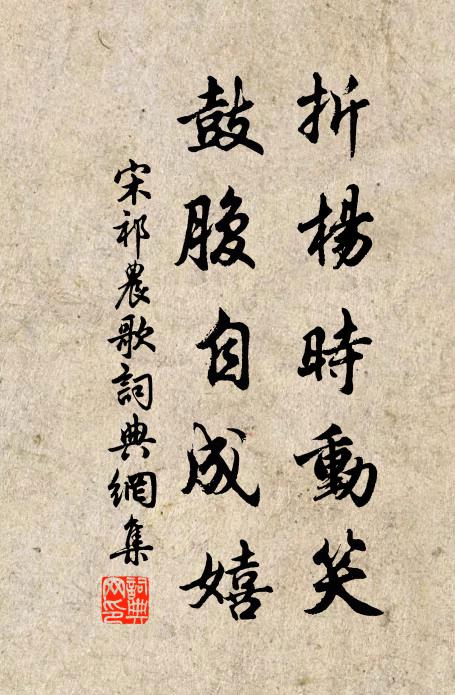 折楊時動笑
鼓腹自成嬉
宋祁農歌詞典網集
詞典網印